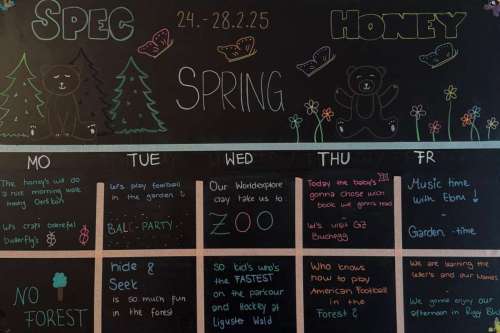 SPEC
24.-28.2.25
HONEY
SPRING
MO
TUE
WED
THU
FR
The honey's will do
a nice morning walk
irchel
Let's craft colorful
butterfly's
Let's play football
in the garden !
BALL-PARTY
Our Worldexplore
day take us to
ZOO
Today the baby's
gonna chose wich
book we gonna read
let's visit GZ
Buchegg
Music time
with Ebru !
Garden-time
NO
FOREST
hide &
Seek
is so much fun
in the forest
So kid's who's
the FASTEST
on the parcour
and Hockey at
Liguster Wald
Who knows
how to play
American Football
in the
Forest ?
We are learning the
letters and our Names
We gonna enjoy our
afternoon in